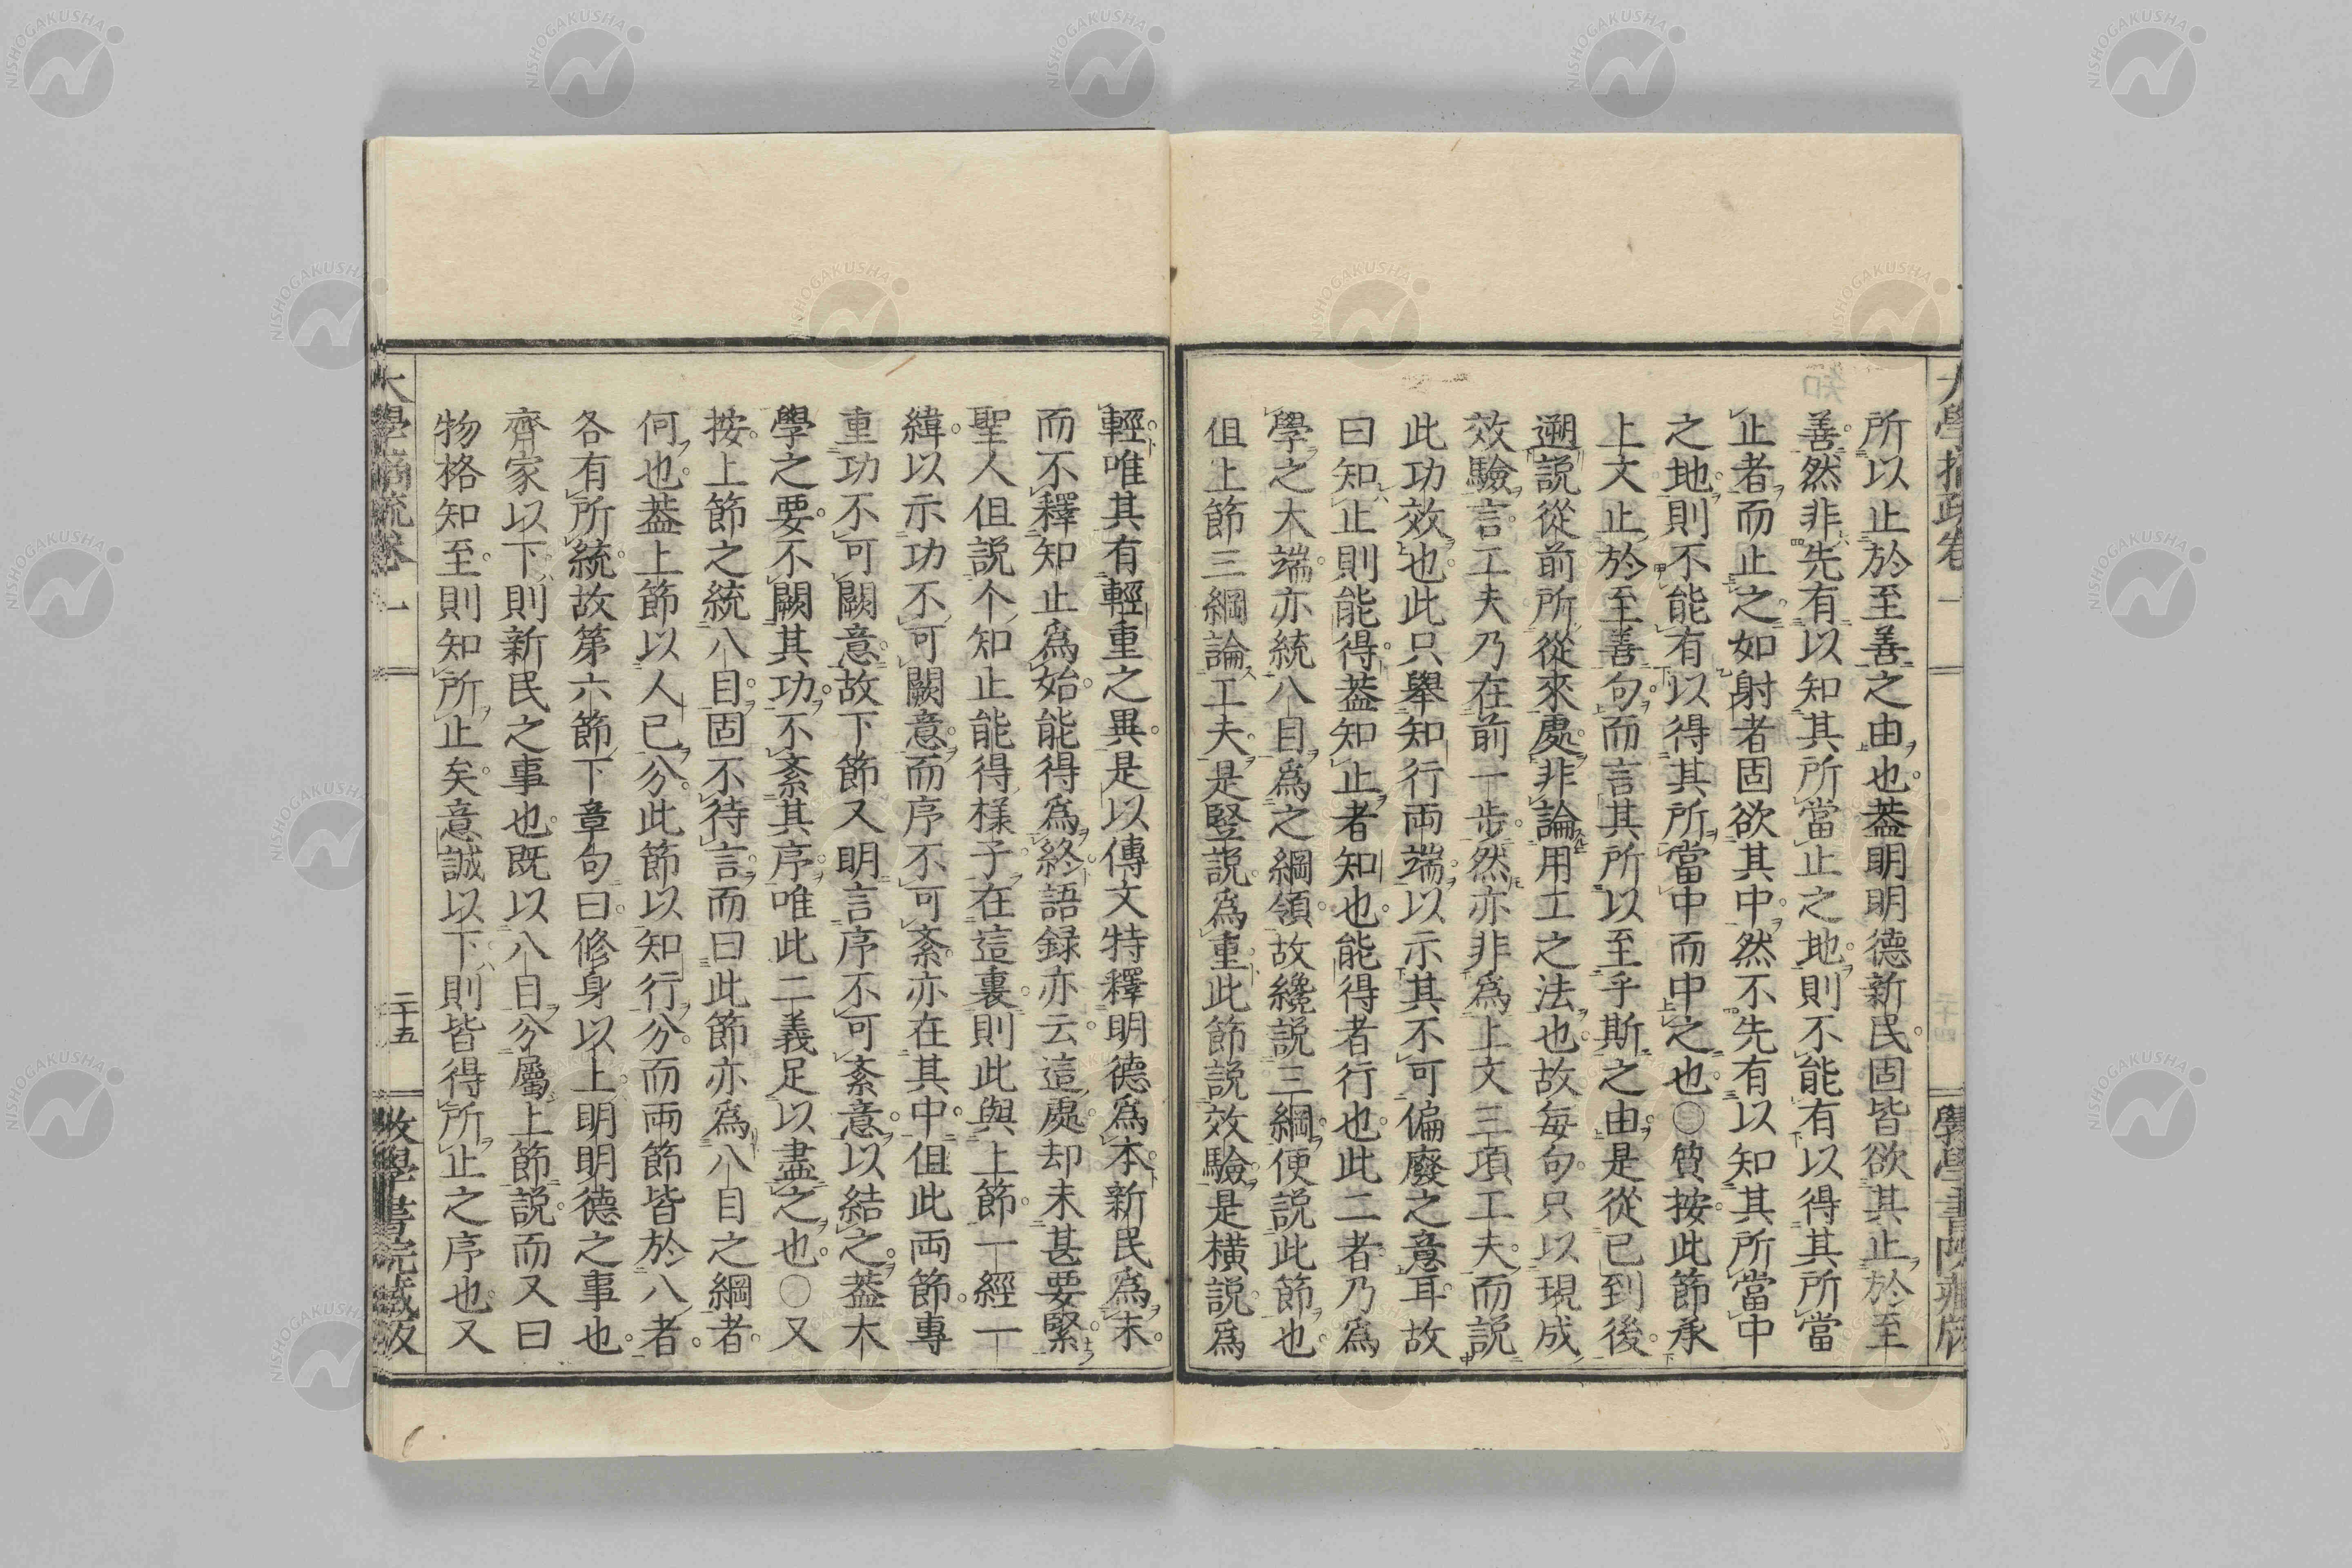 所以止於至善之由也蓋明明德新民固皆欲其止於至
善然非先有以知其所當止之地則不能有以得其所當
止者而止之如射者固欲其中然不先有以知其所當中
之地則不能有以得其所當中而中之也〇質按此節承
上文止於至善句而言其所以至乎斯之由是從已到後
遡說從前所從來處非論用工之法也故每句只以現成
效驗言工夫乃在前一步然亦非爲上文三項工夫而說
此功效也此只舉知行両端以示其不可偏廢之意耳故
曰知止則能得蓋知止者知也能得者行也此二者乃爲
學之大端亦統八目爲之綱領故纔說三綱便說此節也
但上節三綱論工夫是竪說爲重此節說效驗是橫說爲
輕唯其有輕重之異是以傳文特釋明德爲本新民爲末
而不釋知止爲始能得爲終語録亦云這處却未甚要緊
聖人但説个知止能得樣子在這裏則此與上節一經一
緯以示功不可闕意而序不可紊亦在其中但此両節專
重功不可闕意故下節又明言序不可紊意以結之蓋大
學之要不闕其功不紊其序唯此二義足以盡之也〇又
按上節之統八目固不待言而曰此節亦爲八目之綱者
何也蓋上節以人己分此節以知行分而両節皆於八者
各有所統故第六節下章句曰修身以上明明德之事也
齊家以下則新民之事也既以八目分屬上節説而又曰
物格知至則知所止矣意誠以下則皆得所止之序也又
大學摘疏卷一
二十五
敩學書院藏版